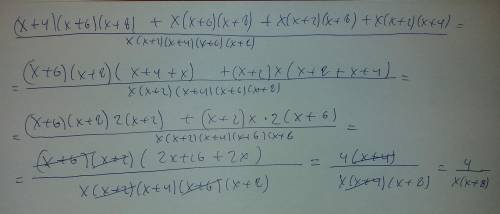 (x+4)(x+6)(x+8) + x(x+6)(x+8) + x(x+2)(x+8) + x(x+2)(x+4) =
x(x+2)(x+4)(x+6)(x+8)
= (x+6)(x+8)(x+4+x) + (x+2)x(x+8+x+4) =
x(x+2)(x+4)(x+6)(x+8)
= (x+6)(x+8)2(x+2) + (x+2)x·2(x+6) =
x(x+2)(x+4)(x+6)(x+8
= (x+6)(x+2)(2x+16+2x) = 4(x+4) = 4
x(x+2)(x+4)(x+6)(x+8) x(x+4)(x+8) x(x+8)